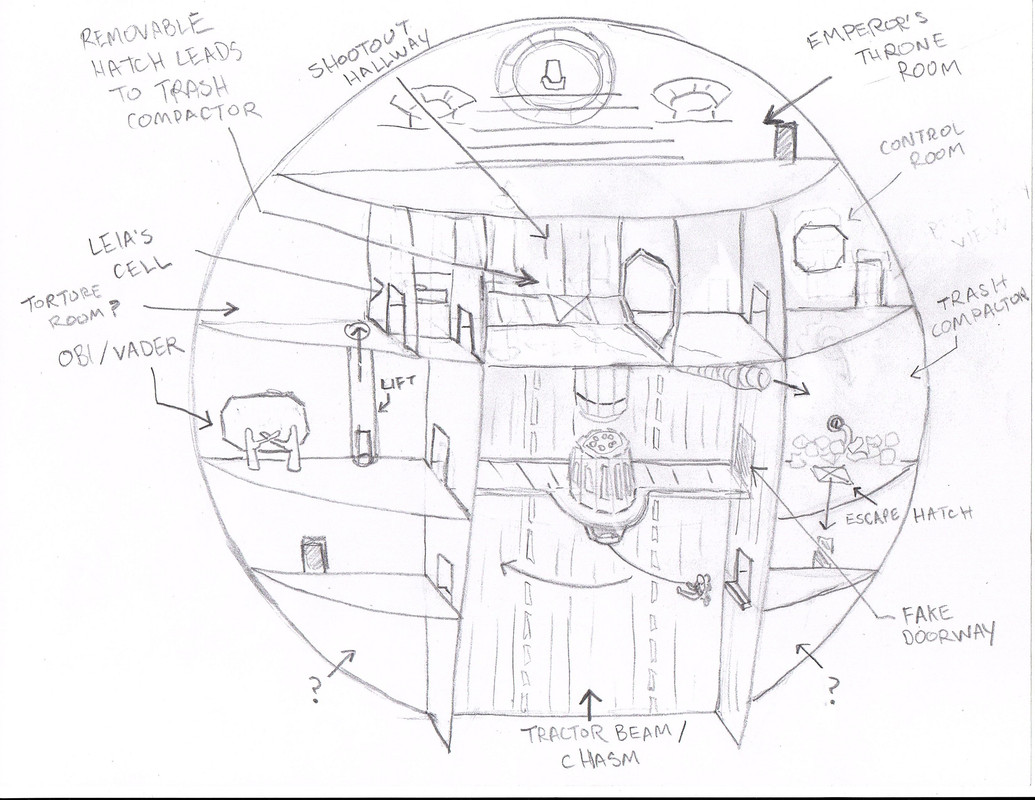 REMOVABLE
HATCH LEADS
TO TRASH
COMPACTOR
SHOOTOUT
HALLWAY
EMPEROR'S
THRONE
ROOM
CONTROL
ROOM
VIEW
LEIA'S
CELL
TORTURE
ROOM?
OBI/VADER
LIFT
TRASH
COMPACTON
ESCAPE HATCH
FAKE
DOORWAY
?
?
TRACTOR BEAM/
CHASM